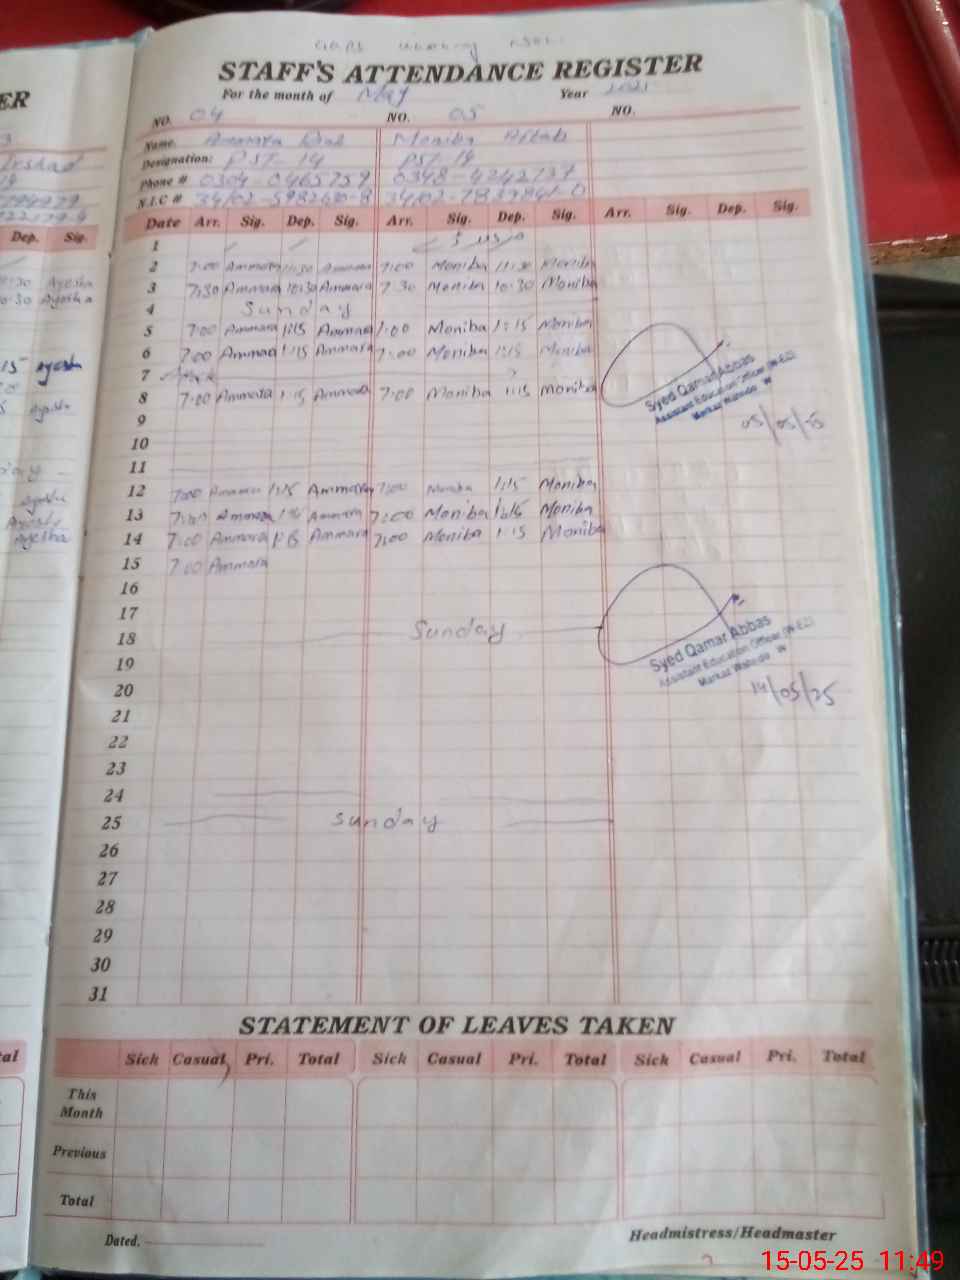 STAFF'S ATTENDANCE REGISTER
For the month of May Year
NO. 04 NO. 05 NO.
Name. Ammara Moniba Aftab
Designation: PST-14 PST-14
Phone # 0304-0465759 0348-4242737
N.I.C #
Date Arr. Sig. Dep. Sig. Arr. Sig. Dep. Sig. Arr. Sig. Dep. Sig.
1
2 7:00 Ammara 11:30 Ammara 7:00 Moniba 11:30 Moniba
3 7:30 Ammara 10:30 Ammara 7:30 Moniba 10:30 Moniba
4 Sunday
5 7:00 Ammara 1:15 Ammara 7:00 Moniba 1:15 Moniba
6 7:00 Ammara 1:15 Ammara 7:00 Moniba 1:15 Moniba
7
8 7:00 Ammara 1:15 Ammara 7:00 Moniba 1:15 Moniba
9
10
11
12 7:00 Ammara 1:15 Ammara 7:00 Moniba 1:15 Moniba
13 7:00 Ammara Ammara 7:00 Moniba Moniba
14 7:00 Ammara 1:15 Ammara 7:00 Moniba 1:15 Moniba
15 7:00 Ammara
16
17
18 Sunday
19
20
21
22
23
24
25 Sunday
26
27
28
29
30
31
Syed Qamar Abbas
Assistant Education Officer (W-EE)
Markaz W
05/05/25
Syed Qamar Abbas
Assistant Education Officer (W-EE)
Markaz W
14/05/25
STATEMENT OF LEAVES TAKEN
Sick Casual Pri. Total Sick Casual Pri. Total Sick Casual Pri. Total
This Month
Previous
Total
Dated. Headmistress/Headmaster
ER
Dep. Sig.
11:30 Ayesha
10:30 Ayesha
Ayesha
Ayesha
Ayesha
Ayesha
Ayesha
15-05-25 11:49